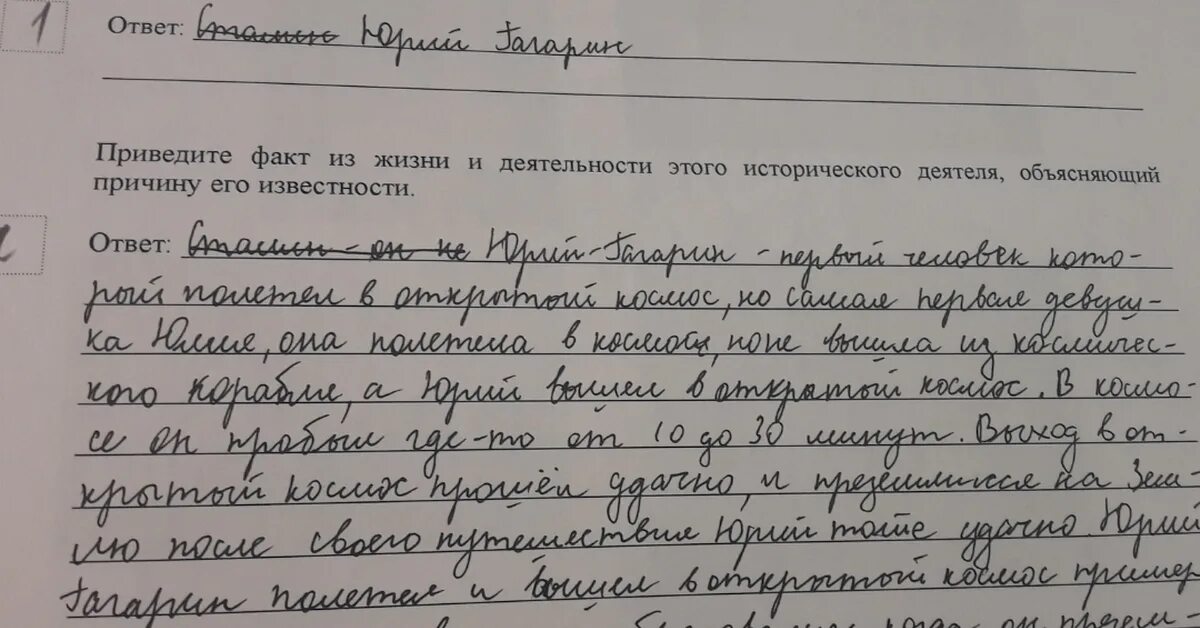 1
Ответ: Сталин Юрий Гагарин
Приведите факт из жизни и деятельности этого исторического деятеля, объясняющий
причину его известности.
Ответ: Сталин - он не Юрий-Гагарин - первый человек кото-
рый полетел в открытый космос, но самая первая девуш-
ка Юлия, она полетела в космос, но не вышла из космичес-
кого корабля, а Юрий вышел в открытый космос. В космо-
се он пробыл где-то от 10 до 30 минут. Выход в от-
крытый космос прошёл удачно, и преземлился на Зем-
лю после своего путешествия Юрий тоже удачно. Юрий
Гагарин полетел и вышел в открытый космос пример
когда он презем-